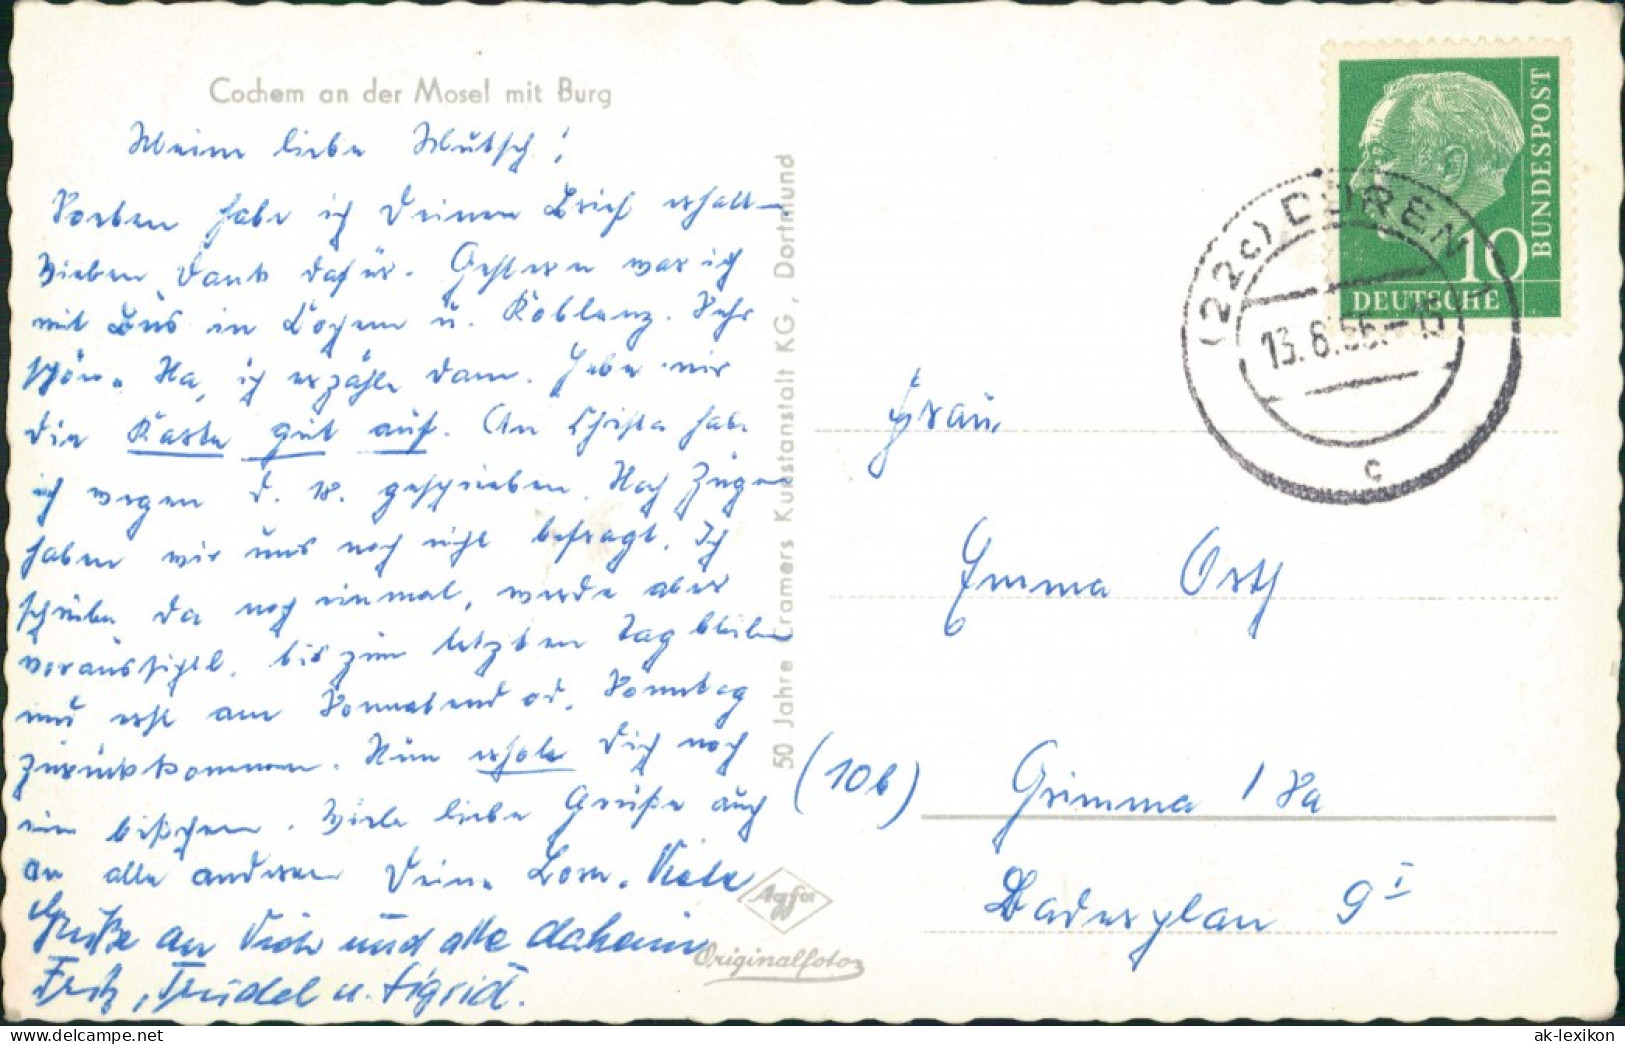 Cochem an der Mosel mit Burg
Meine liebe Mutsch!
Soeben habe ich Deinen Brief erhalten
Vielen Dank dafür. Gestern war ich
mit Bus in Cochem u. Koblenz. Sehr
schön. Na, ich erzähle dann. Hebe mir
die Karte gut auf. An Christa habe
ich wegen d. 18. geschrieben. Nach Zügen
haben wir uns noch nicht befragt. Ich
schreibe da noch einmal, werde aber
voraussichtl. bis zum letzten Tag bleiben
und erst am Sonnabend od. Sonntag
zurückkommen. Nun erhole Dich noch
ein bißchen. Viele liebe Grüße auch
an alle anderen Deine Lore. Viele
Grüße an Dich und alle daheim
Fritz, Trudel u. Sigrid.
50 Jahre Cramers Kunstanstalt KG, Dortmund
Agfa
Originalfoto
DEUTSCHE BUNDESPOST
10
(22c) DÜREN
13.8.56.-15
c
Frau
Emma Orth
(10b) Grimma / Sa
Badergplan 9 I
© ak-ansichtskarten.de
ak-lexikon